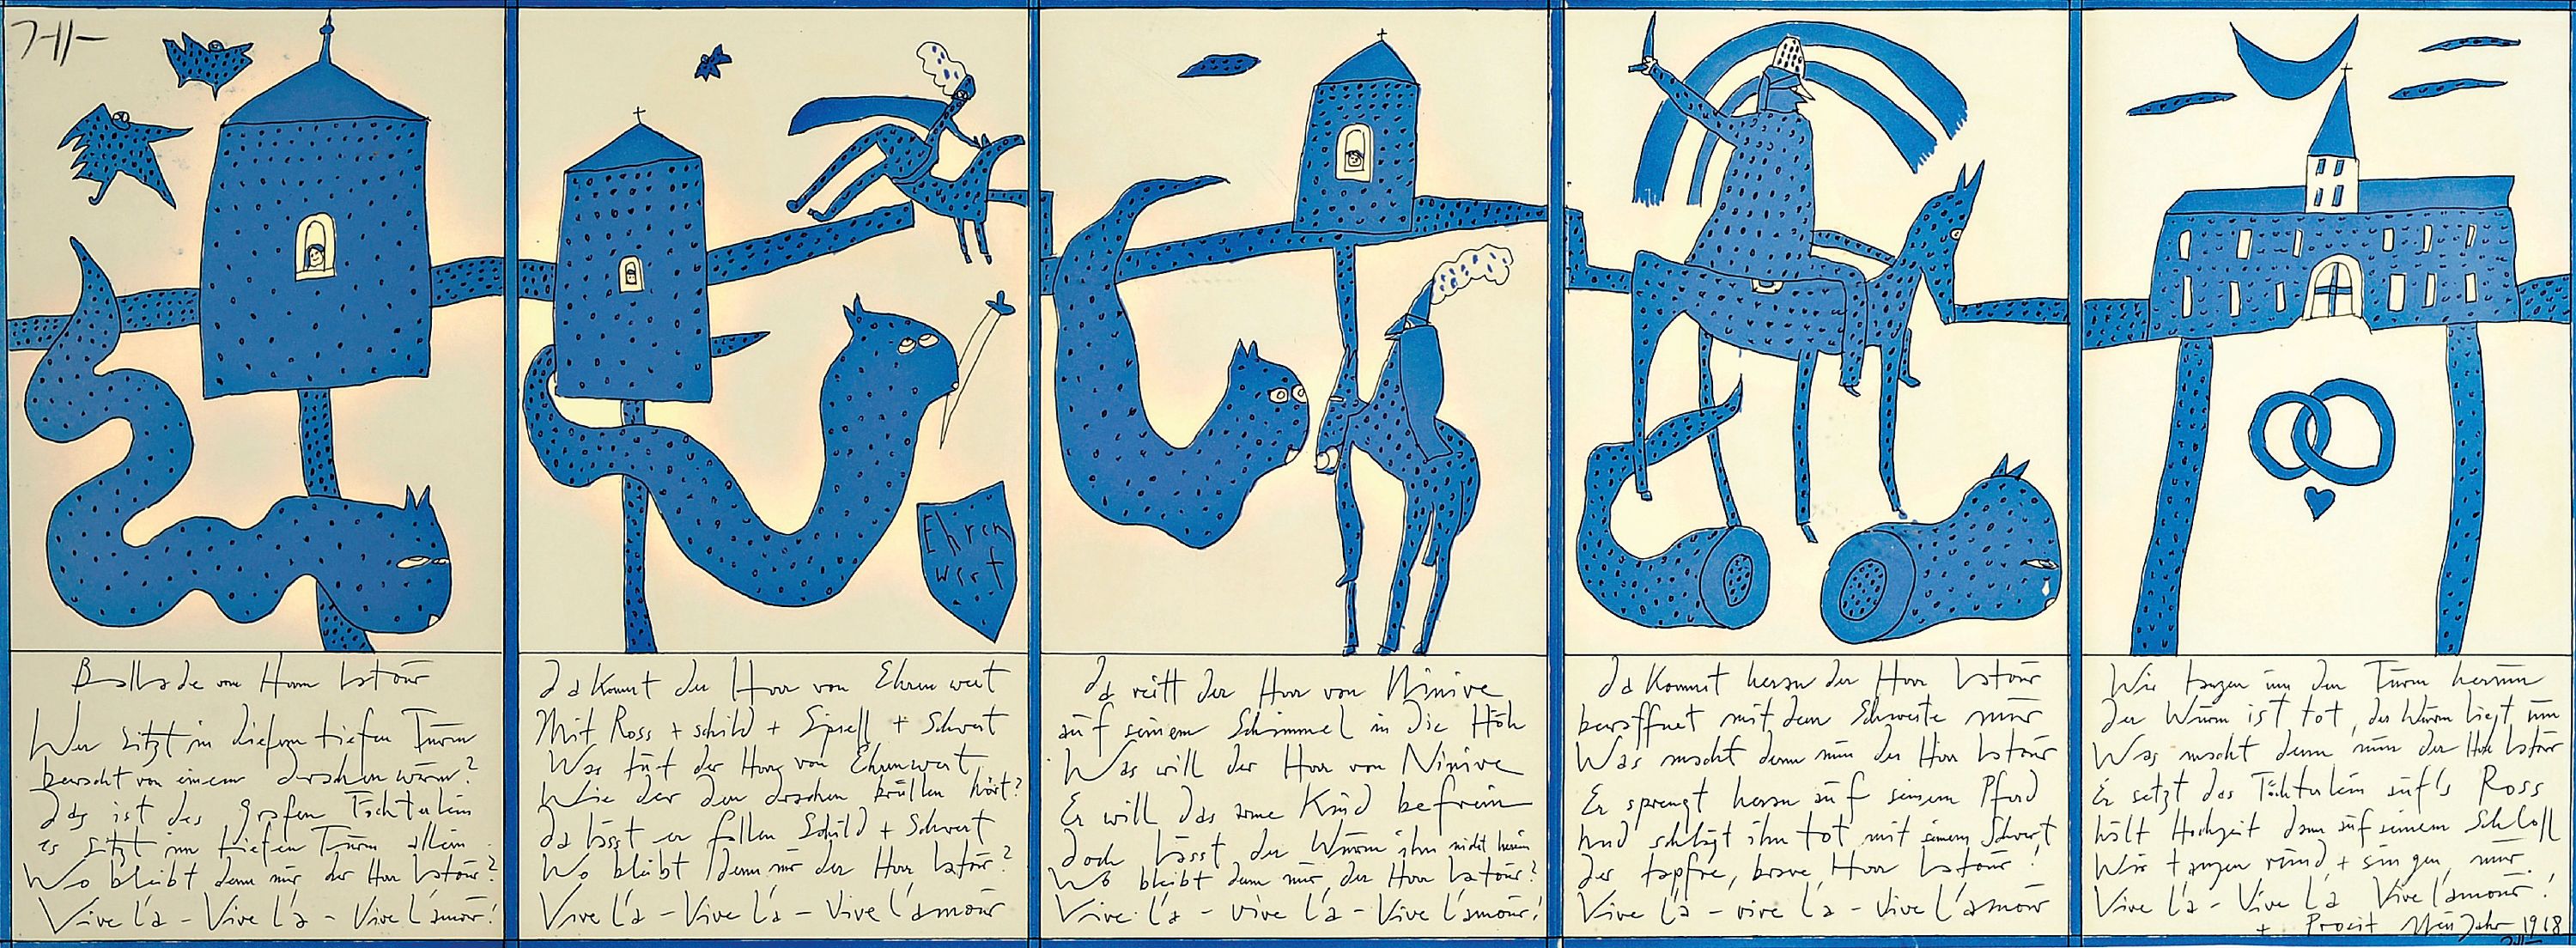 Ehren
wert
Ballade vom Herrn Latour
Wer sitzt in diesem tiefen Turm
bewacht von einem drachenwurm?
das ist des grafen Töchterlein
es sitzt im tiefen Turm allein
Wo bleibt denn nur der Herr Latour?
Vive l'a - Vive l'a - Vive l'amour!
da kommt der Herr von Ehrenwert
Mit Ross + schild + Spiess + Schwert
Was tut der Herr von Ehrenwert
Wie der den drachen brüllen hört?
da lässt er fallen Schild + Schwert
Wo bleibt denn nur der Herr Latour?
Vive l'a - Vive l'a - Vive l'amour
da reitt der Herr von Ninive
auf seinem Schimmel in die Höh
Was will der Herr von Ninive
Er will das arme Kind befrein
doch lässt der Wurm ihn nicht hinein
Wo bleibt denn nur der Herr Latour?
Vive l'a - vive l'a - Vive l'amour!
da kommt heran der Herr Latour
bewaffnet mit dem Schwerte nur
Was macht denn nun der Herr Latour
Er sprengt heran auf seinem Pferd
und schlägt ihn tot mit seinem Schwert
der tapfre, brave Herr Latour!
Vive l'a - vive l'a - Vive l'amour
Wir tanzen um den Turm herum
der Wurm ist tot, der Wurm liegt um
Was macht denn nun der Herr Latour
Er setzt das Töchterlein aufs Ross
hält Hochzeit dann auf seinem Schloss
Wir tanzen rund + singen nur
Vive l'a - Vive l'a Vive l'amour!
+ Prosit Neu Jahr 1968